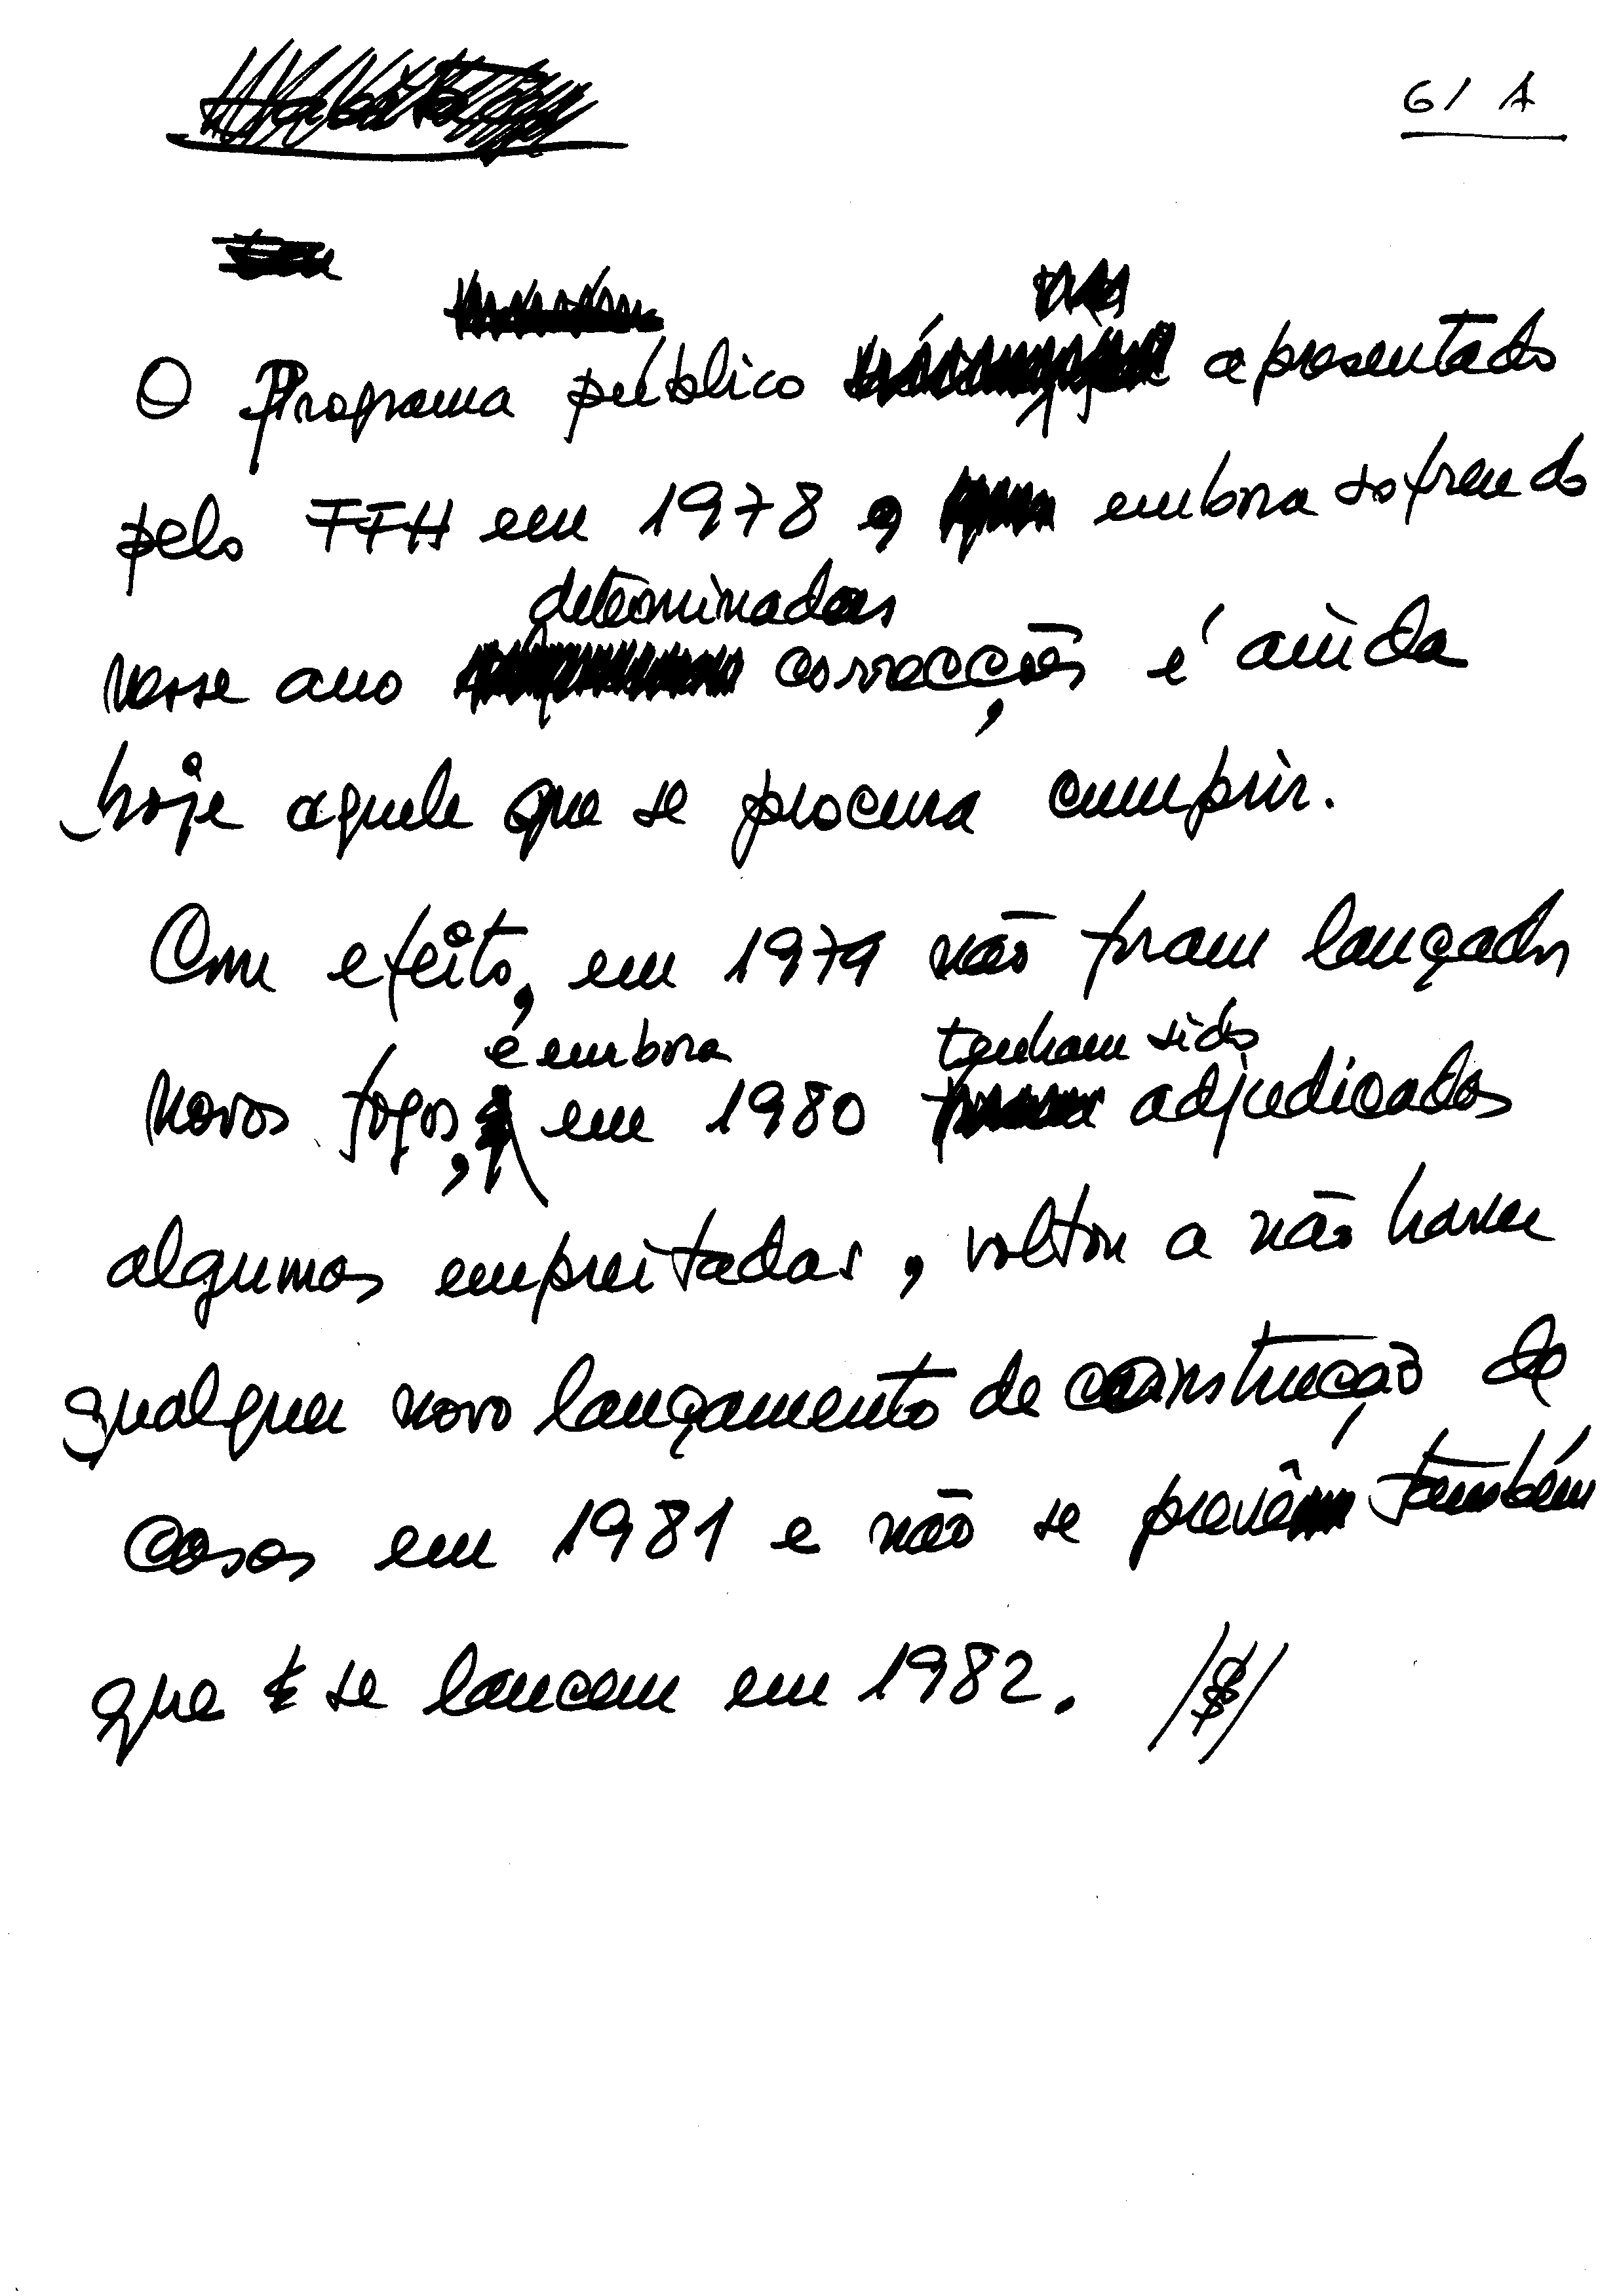 6/ A
O Programa público apresentado
pelo FFH em 1978, embora sofrendo
determinadas
nesse ano correcções é ainda
hoje aquele que se procura cumprir.
Com efeito, em 1979 não foram lançados
e embora tenham sido
novos fogos, em 1980 adjudicados
algumas empreitadas, voltou a não haver
qualquer novo lançamento de construção de
casas em 1981 e não se prevê também
que se lancem em 1982. /$/